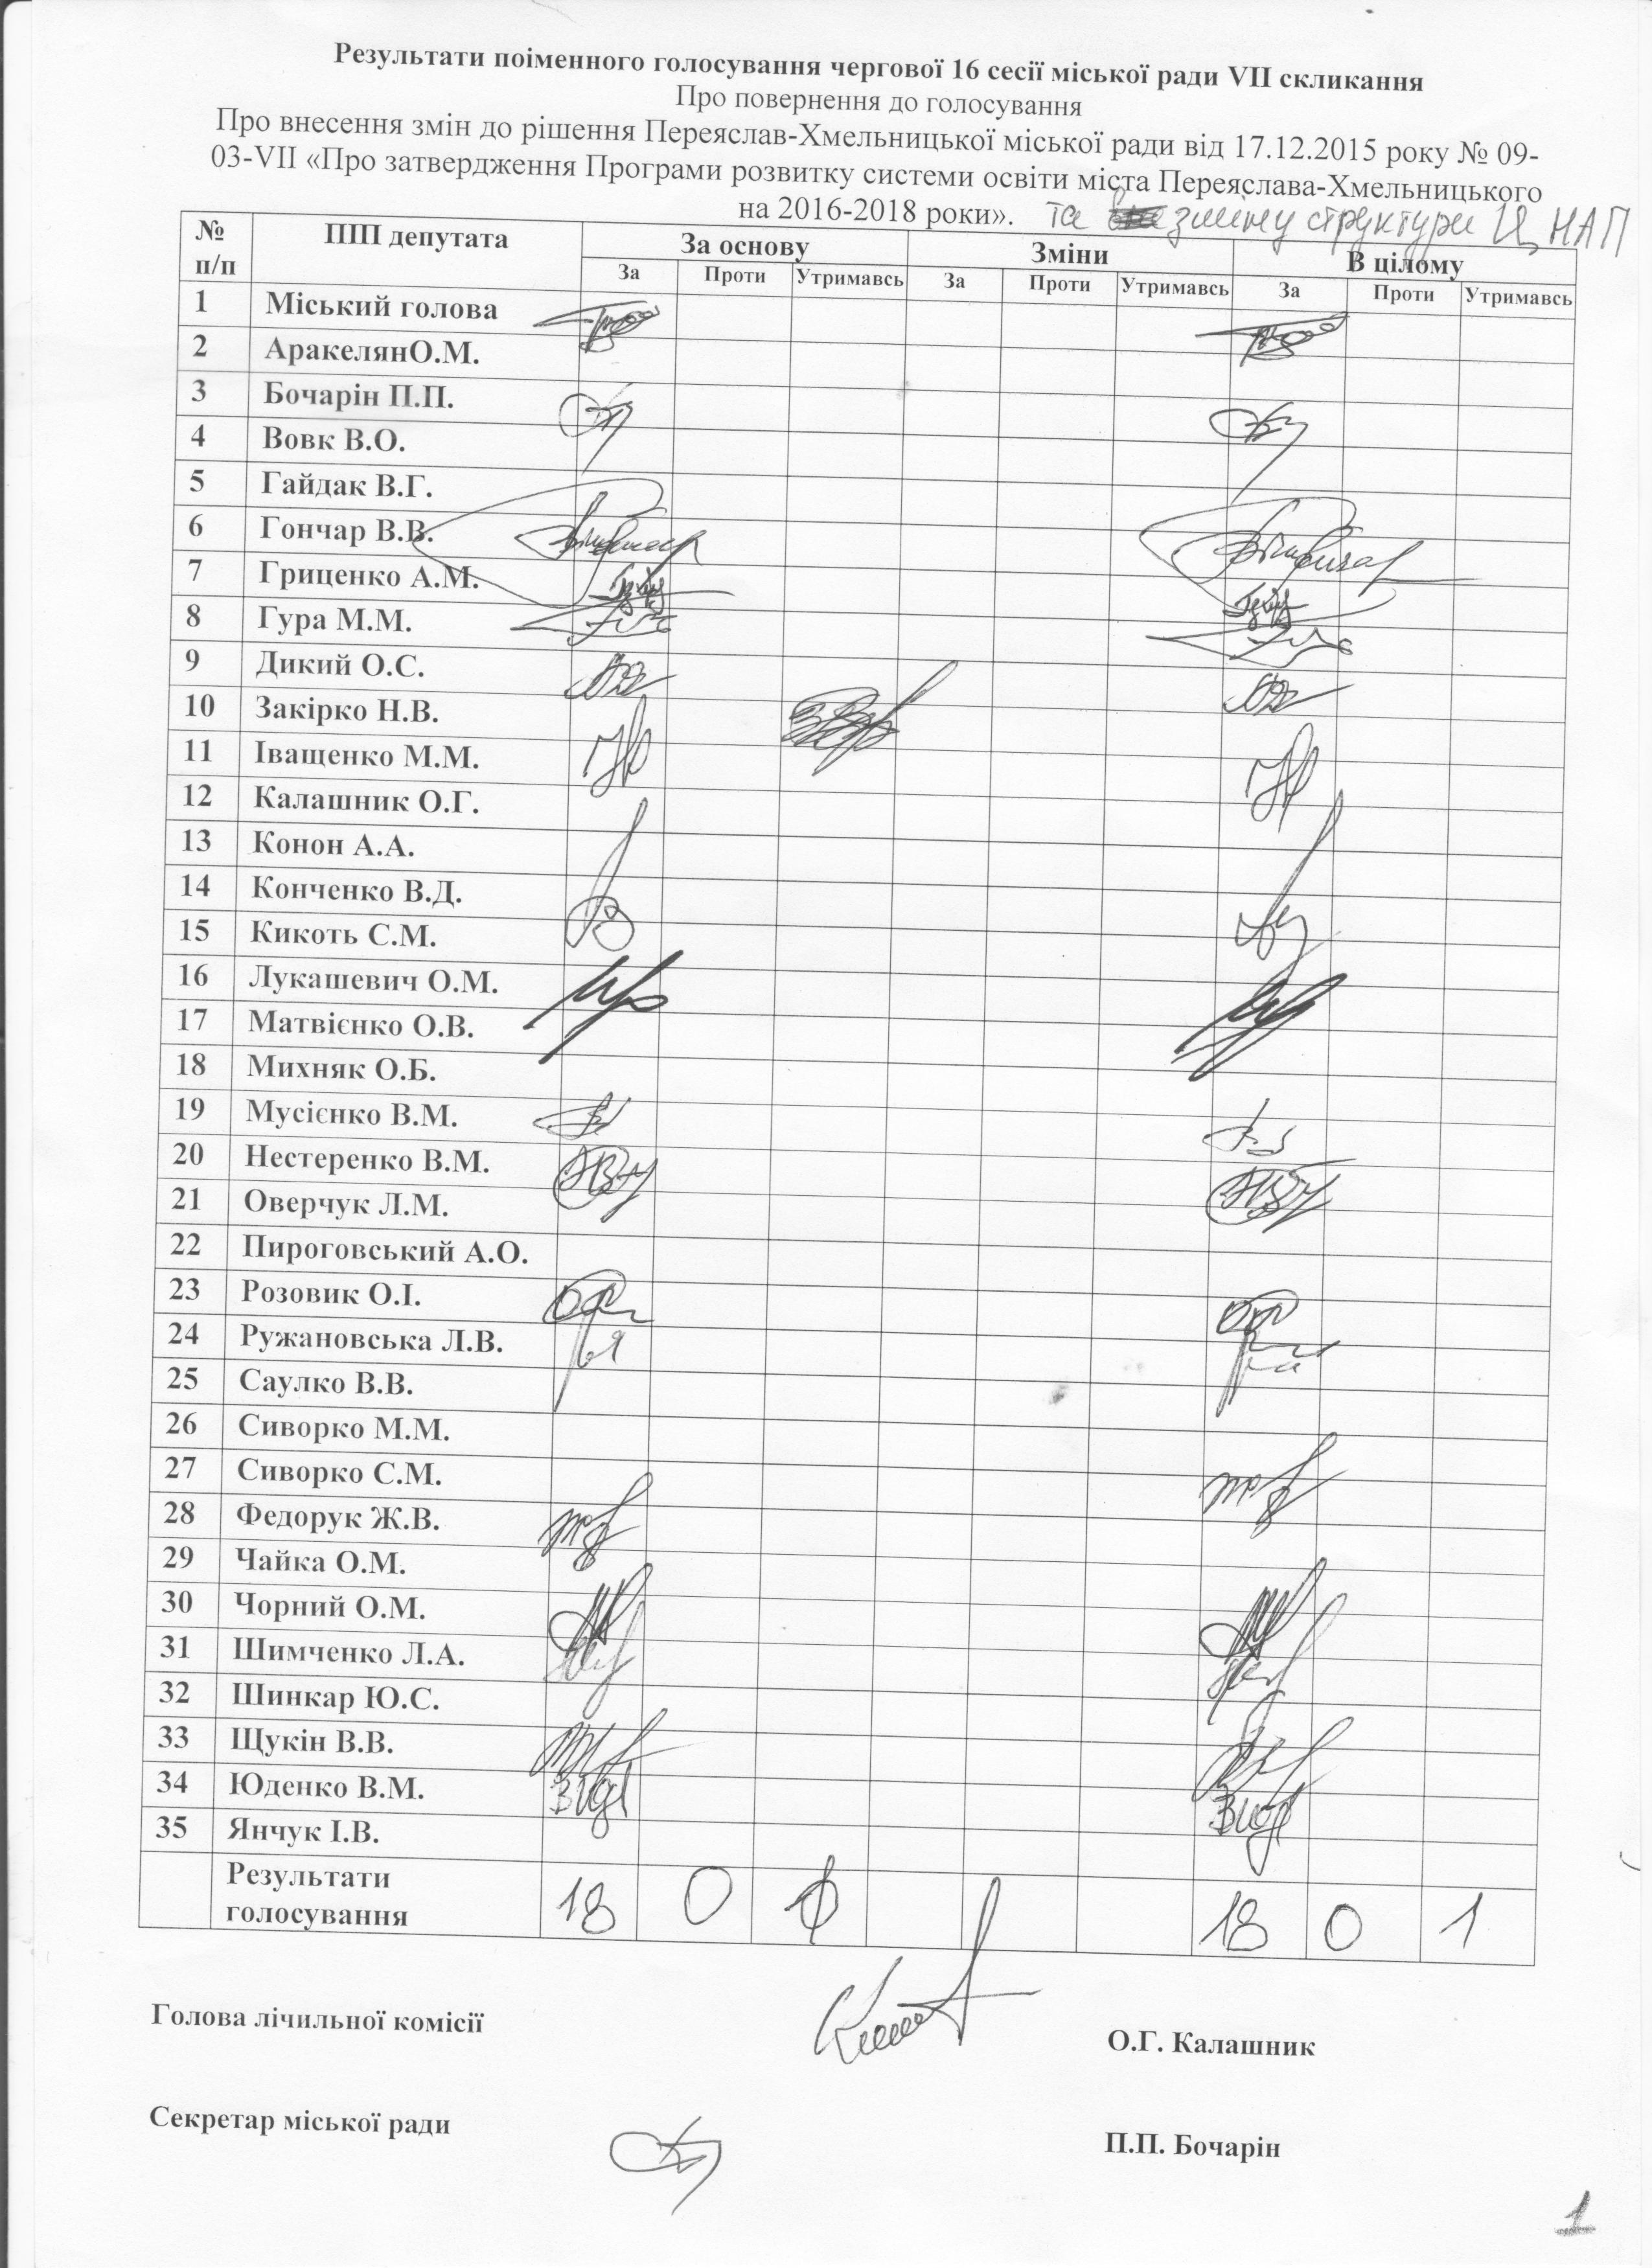 Результати поіменного голосування чергової 16 сесії міської ради VII скликання
Про повернення до голосування
Про внесення змін до рішення Переяслав-Хмельницької міської ради від 17.12.2015 року № 09-
03-VII «Про затвердження Програми розвитку системи освіти міста Переяслава-Хмельницького
на 2016-2018 роки». та зміну структури ЦНАП
№ п/п ПІП депутата За основу Зміни В цілому
За Проти Утримавсь За Проти Утримавсь За Проти Утримавсь
1 Міський голова
2 АракелянО.М.
3 Бочарін П.П.
4 Вовк В.О.
5 Гайдак В.Г.
6 Гончар В.В.
7 Гриценко А.М.
8 Гура М.М.
9 Дикий О.С.
10 Закірко Н.В.
11 Іващенко М.М.
12 Калашник О.Г.
13 Конон А.А.
14 Конченко В.Д.
15 Кикоть С.М.
16 Лукашевич О.М.
17 Матвієнко О.В.
18 Михняк О.Б.
19 Мусієнко В.М.
20 Нестеренко В.М.
21 Оверчук Л.М.
22 Пироговський А.О.
23 Розовик О.І.
24 Ружановська Л.В.
25 Саулко В.В.
26 Сиворко М.М.
27 Сиворко С.М.
28 Федорук Ж.В.
29 Чайка О.М.
30 Чорний О.М.
31 Шимченко Л.А.
32 Шинкар Ю.С.
33 Щукін В.В.
34 Юденко В.М.
35 Янчук І.В.
Результати
голосування 18 0 18 0 1
Голова лічильної комісії О.Г. Калашник
Секретар міської ради П.П. Бочарін
1